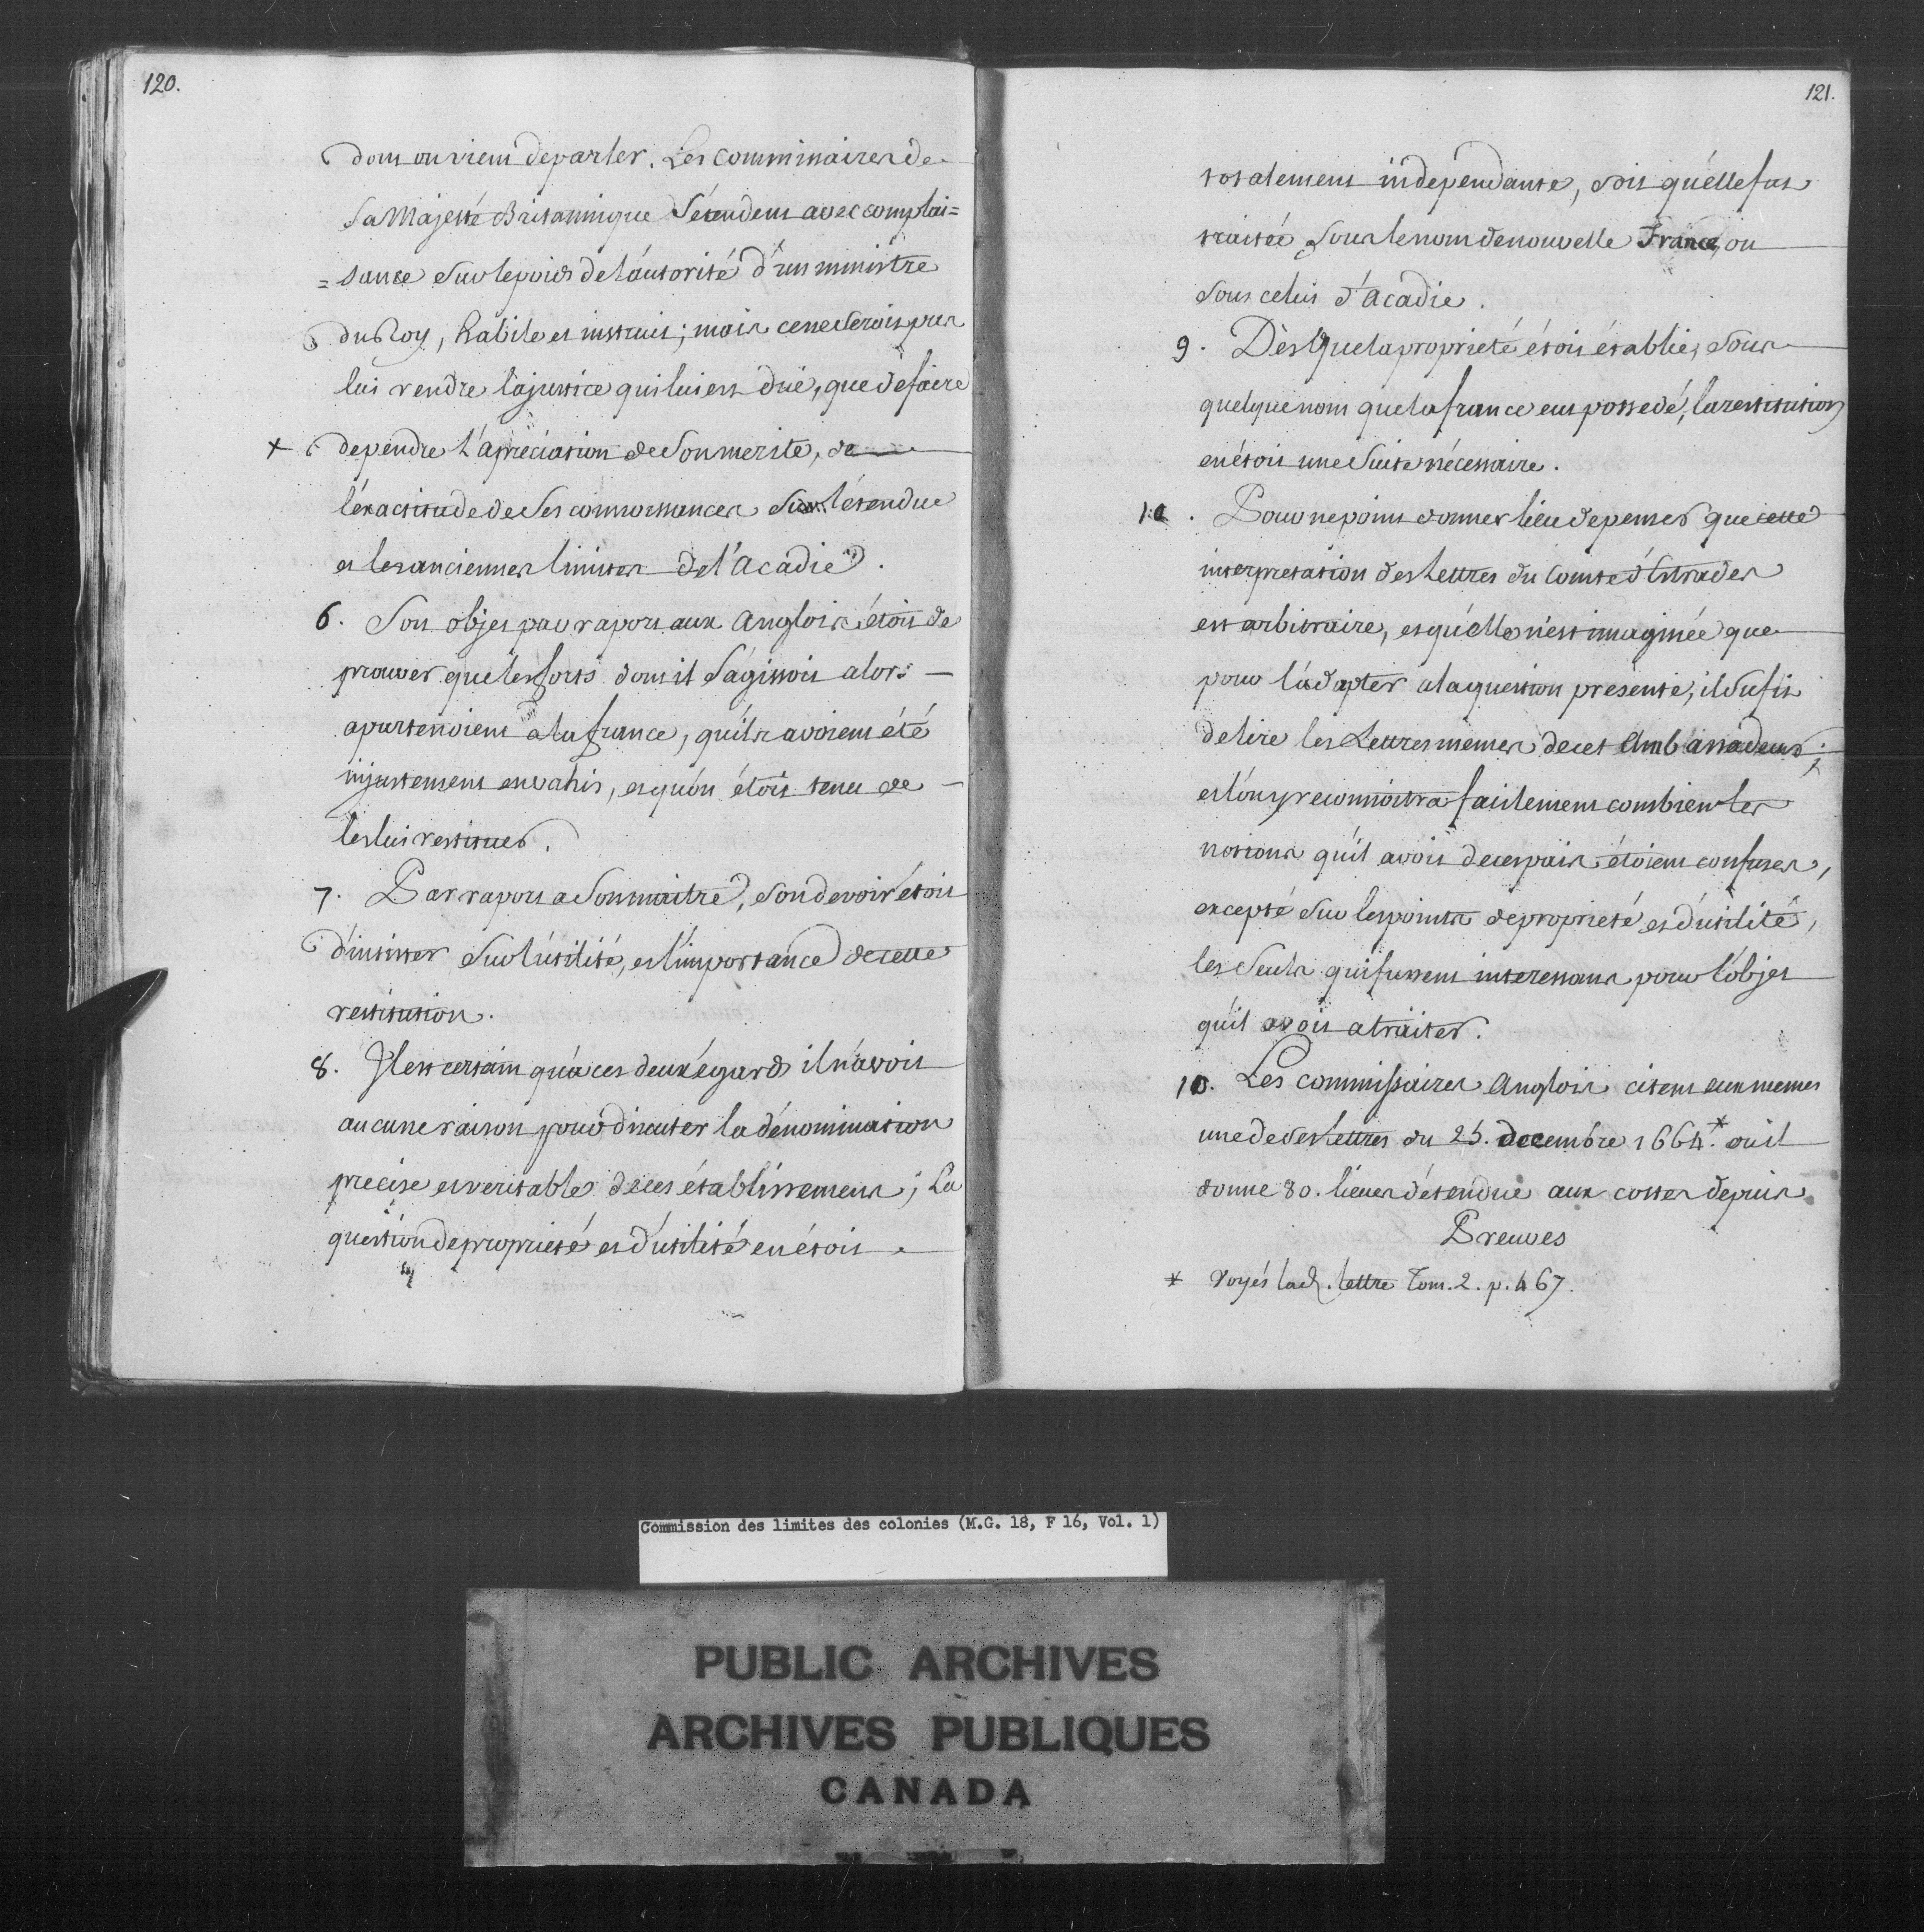 120.
dont on vient de parler. Les Commissaires de
Sa Majesté Britannique s'étendent avec complai=
=sance sur le poids de l'autorité d'un ministre
du Roy, habile et instruit; mais ce ne seroit pas
lui rendre la justice qui lui est düe, que de faire
+ dependre l'apréciation de son merite, de
l'exactitude de ses connoissances sur l'étendue
et les anciennes limites de l'Acadie.
6. Son objet par raport aux Anglois étoit de
prouver que les forts dont il s'agissoit alors
apartenoient a la france, qu'ils avoient été
injustement envahis, et qu'on étoit tenu de
les lui restituer.
7. Par raport a son maitre, son devoir étoit
d'insister sur l'utilité, et l'importance de cette
restitution.
8. Il est certain qu'a ces deux égards il n'avoit
aucune raison pour discuter la dénomination
precise et veritable de ces établissemens; La
question de proprieté et d'utilité en étoit
121.
totalement indépendante, soit qu'elle fut
traitée sous le nom de nouvelle France, ou
sous celui d'Acadie.
9. Dès que la proprieté étoit établie, sous
quelque nom que la france eut possedé, la restitution
en étoit une suite nécessaire.
10. Pour ne point donner lieu de penser que cette
interpretation des Lettres du Comte d'Estrades
est arbitraire, et qu'elle n'est imaginée que
pour l'adapter a la question presente, il sufit
de lire les Lettres memes de cet Ambassadeur;
et l'on y reconnoitra facilement combien les
notions qu'il avoit de ces païs étoient confuses,
excepté sur les points de proprieté et d'utilité,
les seuls qui fussent interessans pour l'objet
qu'il avoit a traiter.
10. Les commissaires Anglois citent eux memes
une de ses Lettres du 25. decembre 1664.* ou il
donne 80. lieues d'étendue aux costes depuis
Preuves
* Voyés lad. lettre Tom. 2. p. 467.
Commission des limites des colonies (M.G. 18, F 16, Vol. 1)
PUBLIC ARCHIVES
ARCHIVES PUBLIQUES
CANADA